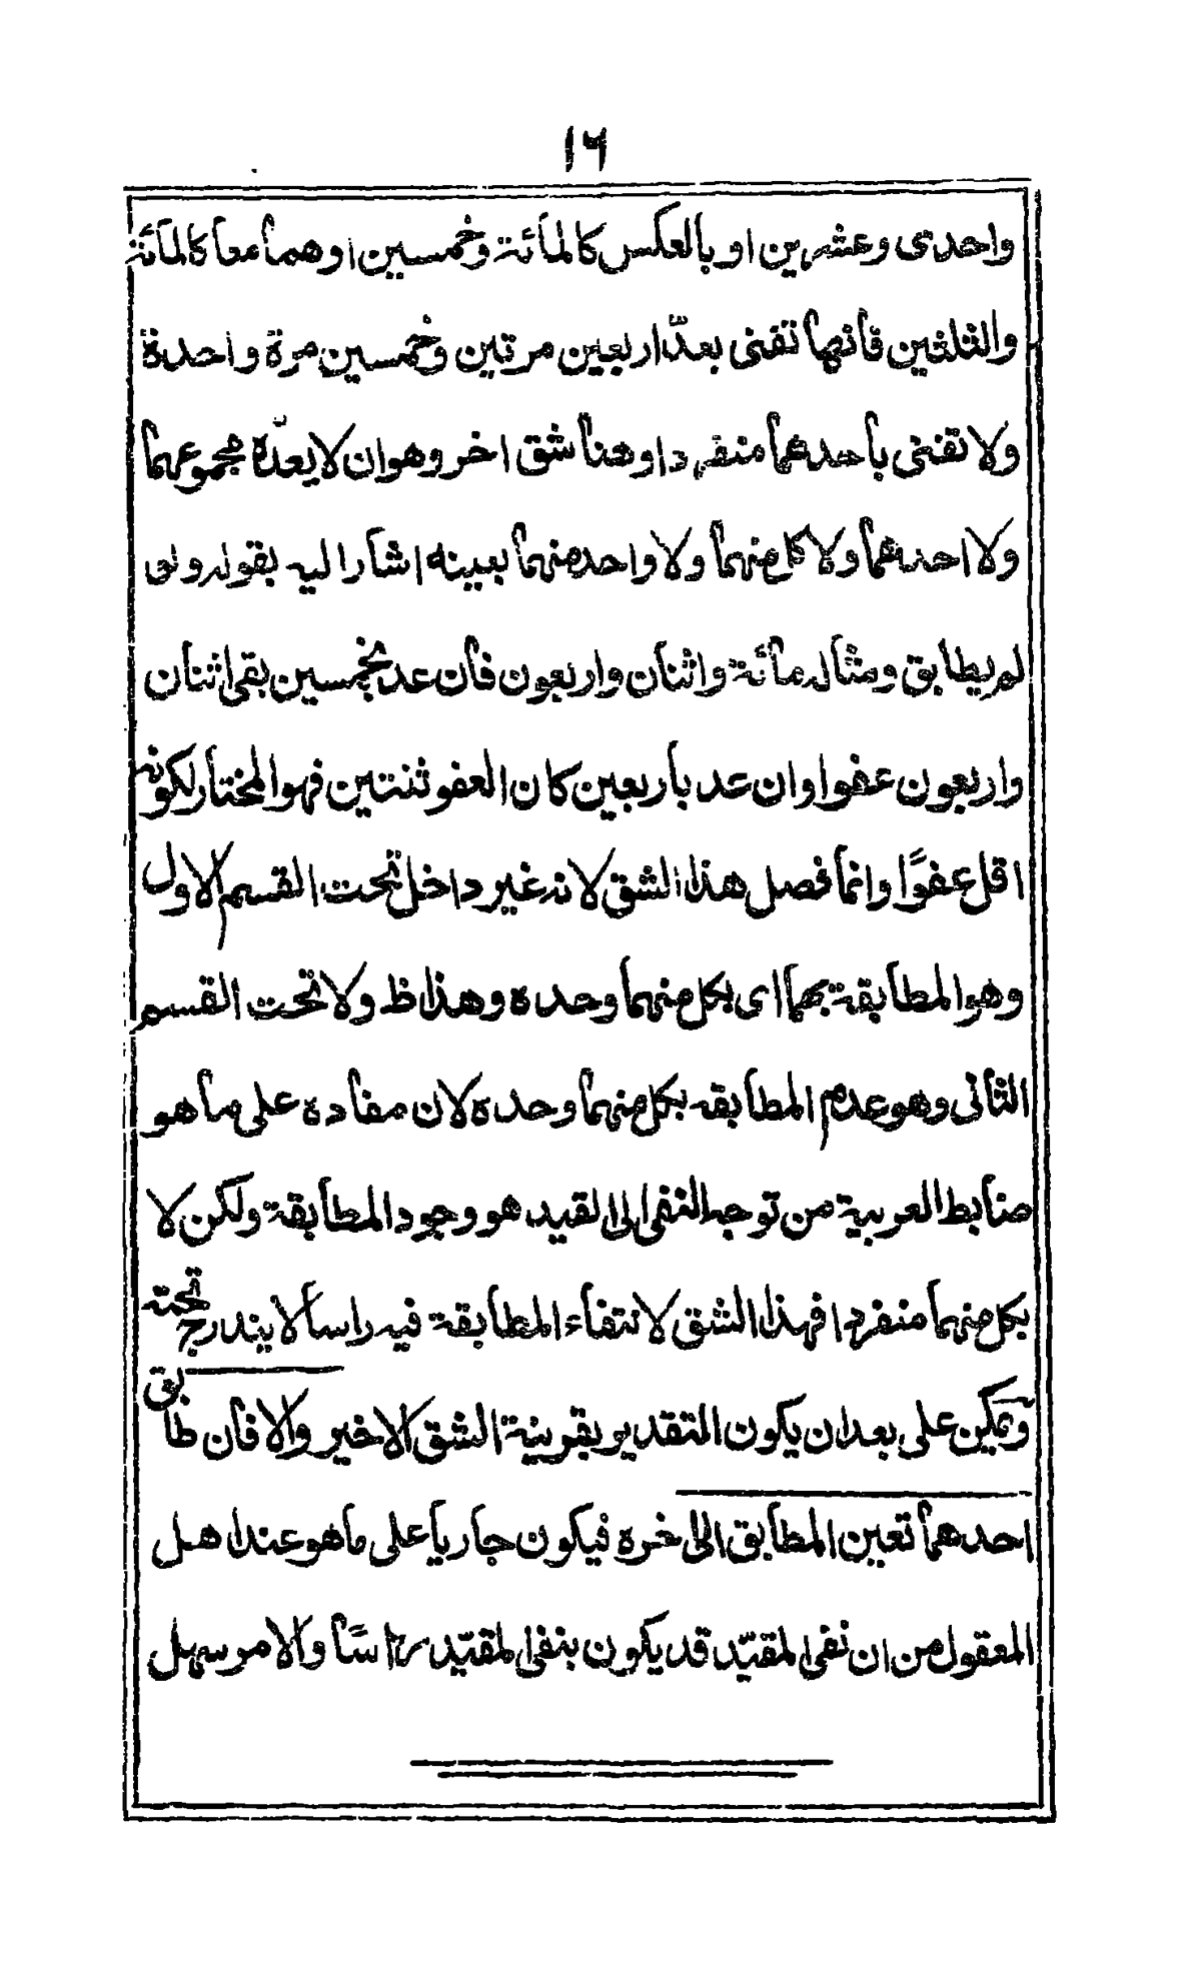 ١٦
واحدى وعشرين او بالعكس كالمائة وخمسين او هما معا كالمائة
والثلثين فانها تفنى بعدّ اربعين مرتين وخمسين مرة واحدة
ولا تفنى باحدهما منفردا وهنا شق اخر وهو ان لا يعدّه مجموعهما
ولا احدهما ولا كل منهما ولا واحد منهما بعينه اشار اليه بقوله وان
لم يطابق ومثاله مائة واثنان واربعون فان عد بخمسين بقى اثنان
واربعون عفوا وان عد باربعين كان العفو ثنتين فهو المختار لكونه
اقل عفوًا وانما فصل هذا الشق لانه غير داخل تحت القسم الاول
وهو المطابقة بهما اى بكل منهما وحده وهذا ظ ولا تحت القسم
الثانى وهو عدم المطابقه بكل منهما وحده لان مفاده على ما هو
ضابط العربية من توجه النفى الى القيد هو وجود المطابقة ولكن لا
بكل منهما منفردا فهذا الشق لانتفاء المطابقة فيه راسا لا يندرج تحته
ويمكن على بعد ان يكون التقدير بقرينة الشق الاخير والا فان طابق
احدهما تعين المطابق الى اخره فيكون جاريا على ما هو عند اهل
المعقول من ان نفى المقيّد قد يكون بنفى المقيّد راسًا والامر سهل